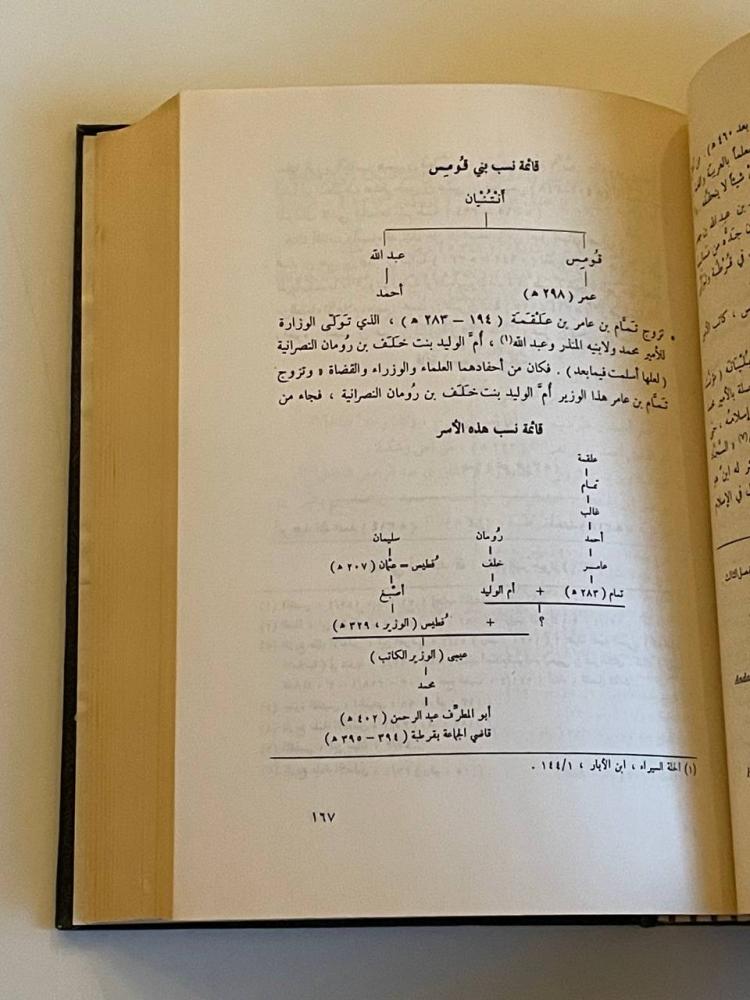 قائمة نسب بني قُومِس
أَنْتُنْيَان
قُومِس
عبد الله
عمر (٢٩٨ ه)
أحمد
• تزوج تَمَّام بن عامر بن عَلْقَمَة (١٩٤ – ٢٨٣ ه) ، الذي تَوَلّى الوزارة
للأمير محمد ولابنيه المنذر وعبد الله(١) ، أُمَّ الوليد بنت خَلَف بن رُومان النصرانية
(لعلها أسلمت فيما بعد) . فكان من أحفادهما العلماء والوزراء والقضاة « وتزوج
تَمَّام بن عامر هذا الوزير أُمَّ الوليد بنت خَلَف بن رُومان النصرانية ، فجاء من
قائمة نسب هذه الأسر
علقمة
تمام
غالب
أحمد
رُومان
سليمان
عامر
خلف
فُطيس – عثمان (٢٠٧ ه)
تمام (٢٨٣ ه)
+
أم الوليد
أصْبَغ
؟
+
فُطيس (الوزير ، ٣٢٩ ه)
عيسى (الوزير الكاتب)
محمد
أبو المطرِّف عبد الرحمن (٤٠٢ ه)
قاضي الجماعة بقرطبة (٣٩٤ – ٣٩٥ ه)
(١) الحلة السيراء ، ابن الأبار ، ١٤٤/١ .
١٦٧